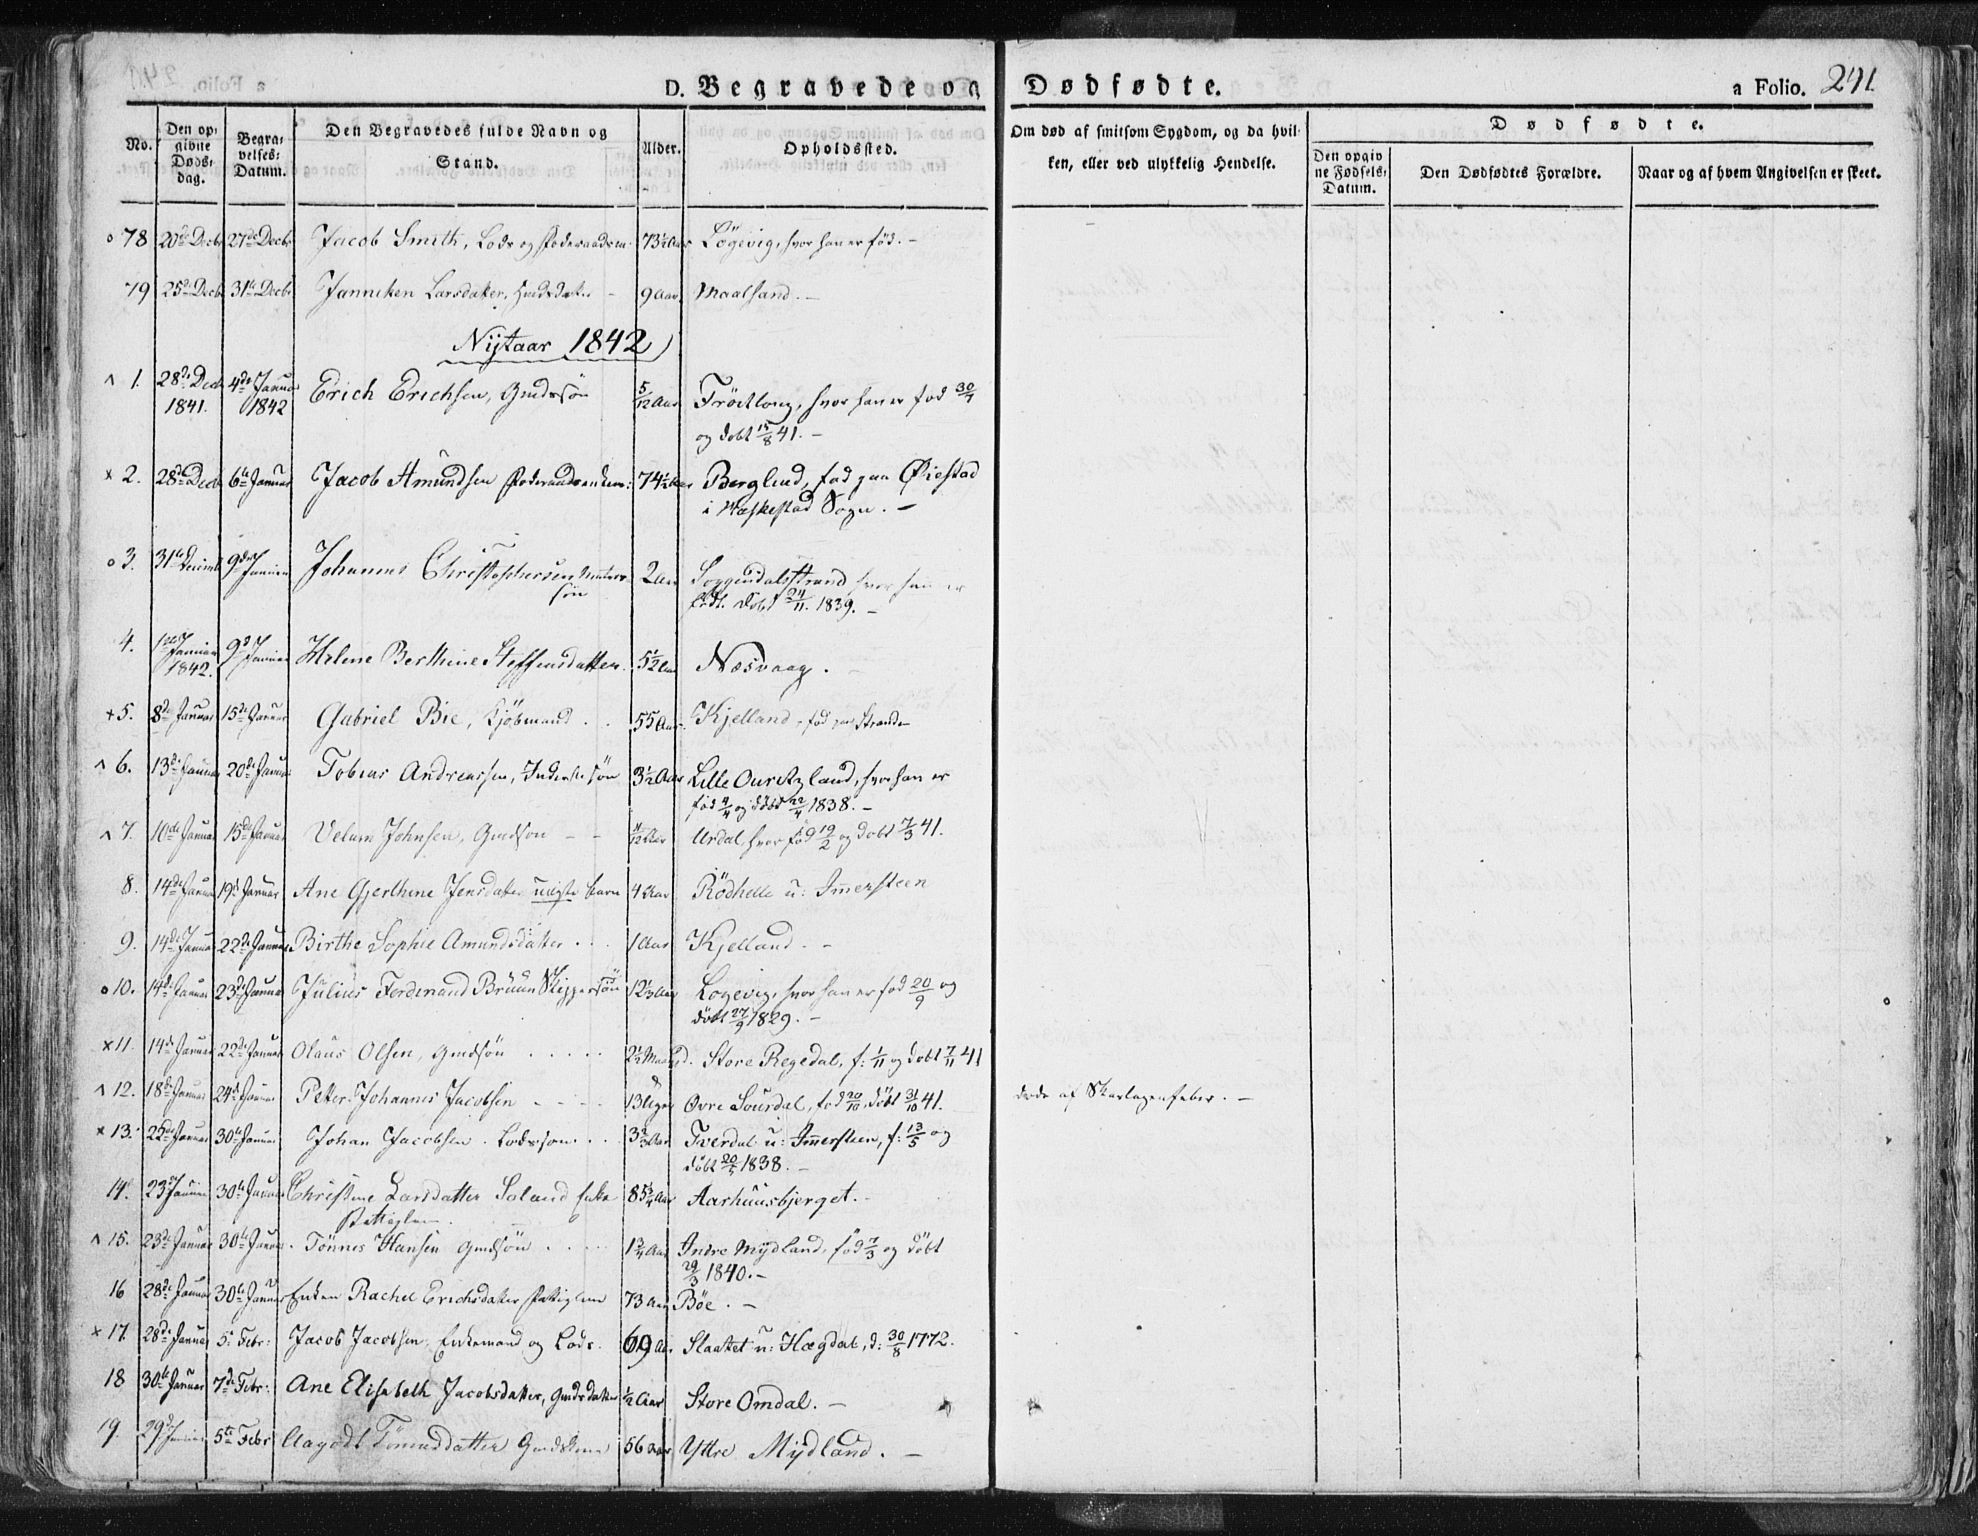 D. Begravede og Dødfødte. a Folio. 241.
No. Den op- givne Døds- dag. Begra- velses- Datum. Den Begravedes fulde Navn og Stand. Alder. Opholdssted. Om død af smitsom Sygdom, og da hvil- ken, eller ved ulykkelig Hendelse. Dødfødte.
Den opgiv ne Fødsels- Datum. Den Dødfødtes Forældre. Naar og af hvem Angivelsen er skeet.
o 78 20de Decbr 27de Decbr Jacob Smith, Lods og Føderaadsm. 73½ Aar Løgevig, hvor han er fød. –
79 25de Decbr 31te Decbr Janniken Larsdatter, – 9 Aar Maalsand. –
Nijtaar 1842
^ 1. 28de Decbr 1841. 4de Januar 1842 Erich Erichsen, Gmdssøn 5/12 Aar hvor han er fød 30/7
og døbt 15/8 41. –
x 2. 28de Decb 6te Januar Jacob Amundsen 74½ Aar Berglind, fød paa Øiestad
i Sogn. –
o 3. 31te Decemb 9de Januar Johannes Christophersen
søn 2 Aar Soggendalsstrand hvor han er
født. døbt 24/11. 1839. –
4. 1ste Januar 1842. 9de Januar Helene Berthine Steffensdatter. 5½ Aar Næsvaag. –
+ 5. 8de Januar 15de Januar Gabriel Bie, Kjøbmand . . 55 Aar. Kjelland, fød paa Stranden
^ 6. 13de Januar 20de Januar Tobias Andreassen, Inderstesøn 3½ Aar Lille hvor han er
fød 4/4 og døbt 22/4 1838. –
^ 7. 10de Januar 15de Januar Velum Johnsen, Gmdsøn – – 11/12 Aar Ursdal, hvor fød 19/2 og døbt 7/3 41.
8. 14de Januar 19de Januar Ane Gjerthine Jensdatter uægte Barn 4 Aar Rödhelle u: Immersteen
9. 14de Januar 22de Januar Birthe Sophie Amundsdatter . . . 1 Aar Kjelland. –
o 10. 14de Januar 23de Januar Julius Ferdinand Bruun Skippersøn 12⅓ Aar Logevig, hvor han er fød 20/9 og
døbt 27/9 1829. –
x 11. 14de Januar 22de Januar Olaus Olsen, Gmdsøn . . . . . 2½ Maaned. Store Regedal, f: 1/11 og døbt 7/11 41
^ 12. 18de Januar 24de Januar Petter Johannes Jacobsen – – – 13 Uger Ovre Sourdal, fød 20/10, døbt 31/10 41. døde af Skarlagensfeber. –
x 13. 22de Januar 30te Januar Johan Jacobsen. Lodssøn . . . 3⅔ Aar Tverdal u: Immersteen, f: 13/5 og
døbt 20/5 1838. –
14. 23 Januar 30te Januar Christine Larsdatter Soland Enke
Fattiglem. 85¾ Aar Aarhuusbjerget. –
^ 15. 23de Januar 30te Januar. Tönnes Hansen Gmdsøn . . . . 1¾ Aar Indre Mydland, fød 7/3 og døbt
29/3 1840. –
16 28de Januar 30te Januar Enken Rachel Erichsdatter Fattiglem 73 Aar Böe. –
x 17. 28de Januar 5. Febr: Jacob Jacobsen, Enkemand og Lods. 69 Aar Slaattet u: Hægdal, d: 30/8 1772.
18 30te Januar 7de Febr: Ane Elisabeth Jacobsdatter, Gmdsdatter ½ Aar Store Omdal. –
19. 29de Januar 5te Febr Aagodt Tönnesdatter Gmdskone 56 Aar Yttre Mydland. –